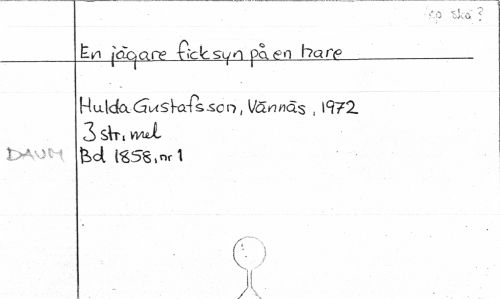 ska?
En jägare fick syn på en hare
Hulda Gustafsson, Vännäs, 1972
3 str, mel
DAUM Bd 1858, nr 1